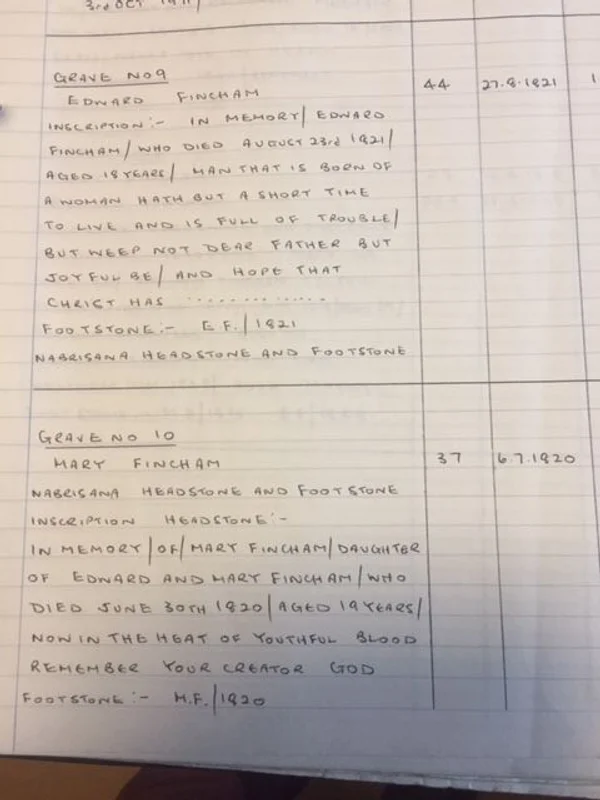 3rd OCT 1911/
GRAVE NO 9
EDWARD FINCHAM 44 27.8.1821 1
INSCRIPTION:- IN MEMORY/ EDWARD
FINCHAM/ WHO DIED AUGUST 23rd 1821/
AGED 18 YEARS/ MAN THAT IS BORN OF
A WOMAN HATH BUT A SHORT TIME
TO LIVE AND IS FULL OF TROUBLE/
BUT WEEP NOT DEAR FATHER BUT
JOYFUL BE/ AND HOPE THAT
CHRIST HAS .............
FOOTSTONE:- E.F./ 1821
NABRISANA HEADSTONE AND FOOTSTONE
GRAVE NO 10
MARY FINCHAM 37 6.7.1820
NABRISANA HEADSTONE AND FOOTSTONE
INSCRIPTION HEADSTONE:-
IN MEMORY/OF/MARY FINCHAM/DAUGHTER
OF EDWARD AND MARY FINCHAM/WHO
DIED JUNE 30TH 1820/AGED 19 YEARS/
NOW IN THE HEAT OF YOUTHFUL BLOOD
REMEMBER YOUR CREATOR GOD
FOOTSTONE:- M.F./1820